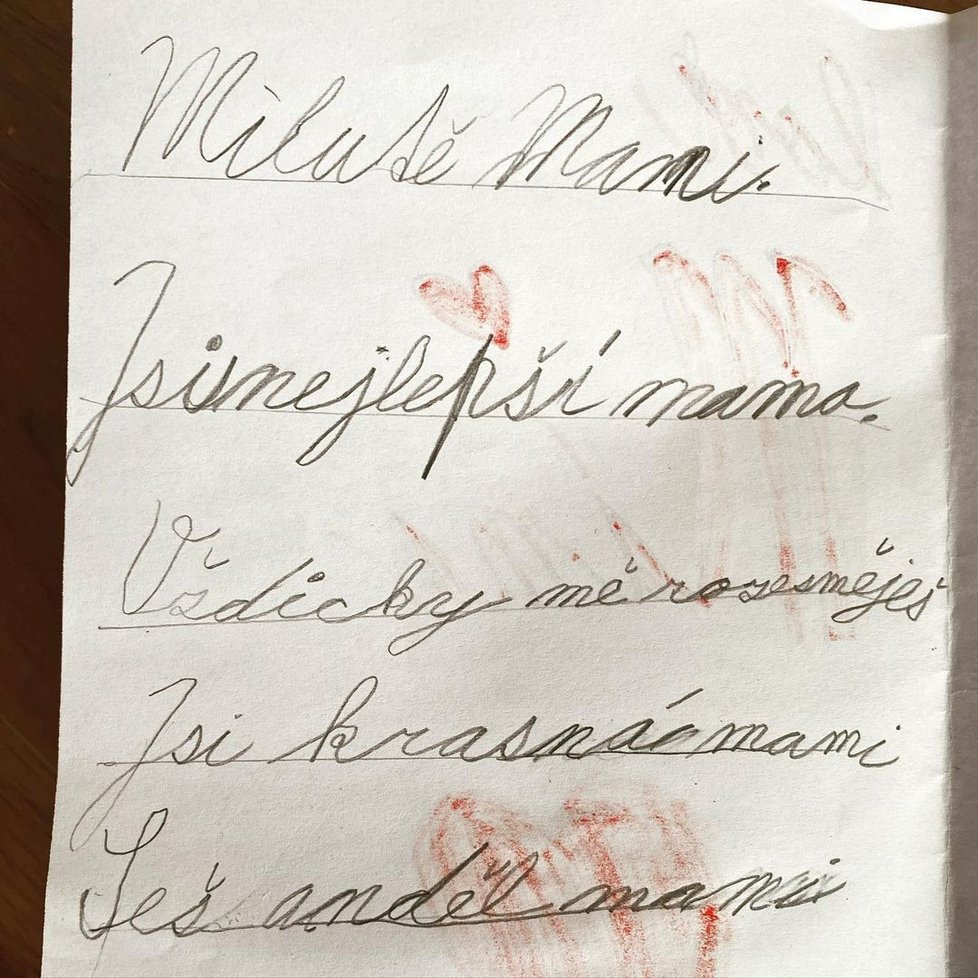 Milušě Mami.
Jsi nejlepší mama.
Vždicky mě rozesměješ
Jsi krasná mami
Ješ anděl mami